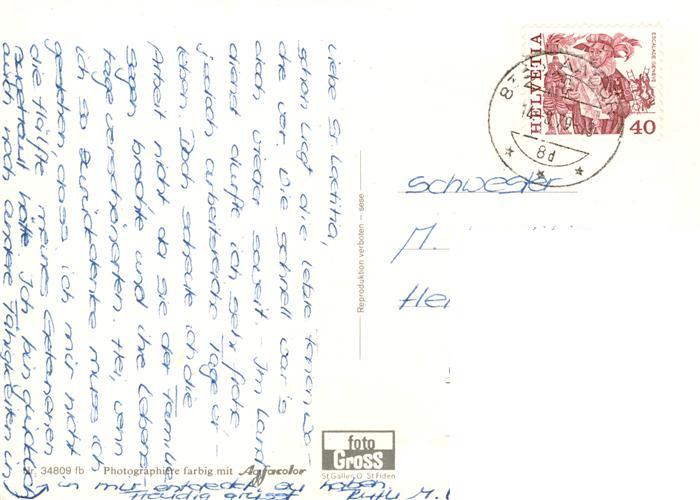 Liebe S. Laetitia,
schon liegt die letzte Ferienwo-
che vor. Wie schnell war's
doch wieder soweit. Im Land-
dienst durfte ich sehr frohe,
jedoch arbeitsreiche Tage er-
leben. Doch scheute ich die
Arbeit nicht, da sie der Familie
Segen brachte und ihr Leben
tage verschönerten. Hei, wenn
ich so zurückdenke muss ich
gestehen, dass ich mir nicht
die Hälfte meines
zugetraut hätte. Ich bin glücklich
auch noch andere Fähigkeiten in
in mir entdeckt zu haben.
grüsst Ruth M.
HELVETIA
ESCALADE GENÈVE
40
8d
Schwester
M.
Hei
Reproduktion verboten – sese
foto
Gross
St. Gallen O. St. Fiden
Nr. 34809 fb Photographière farbig mit Agfacolor